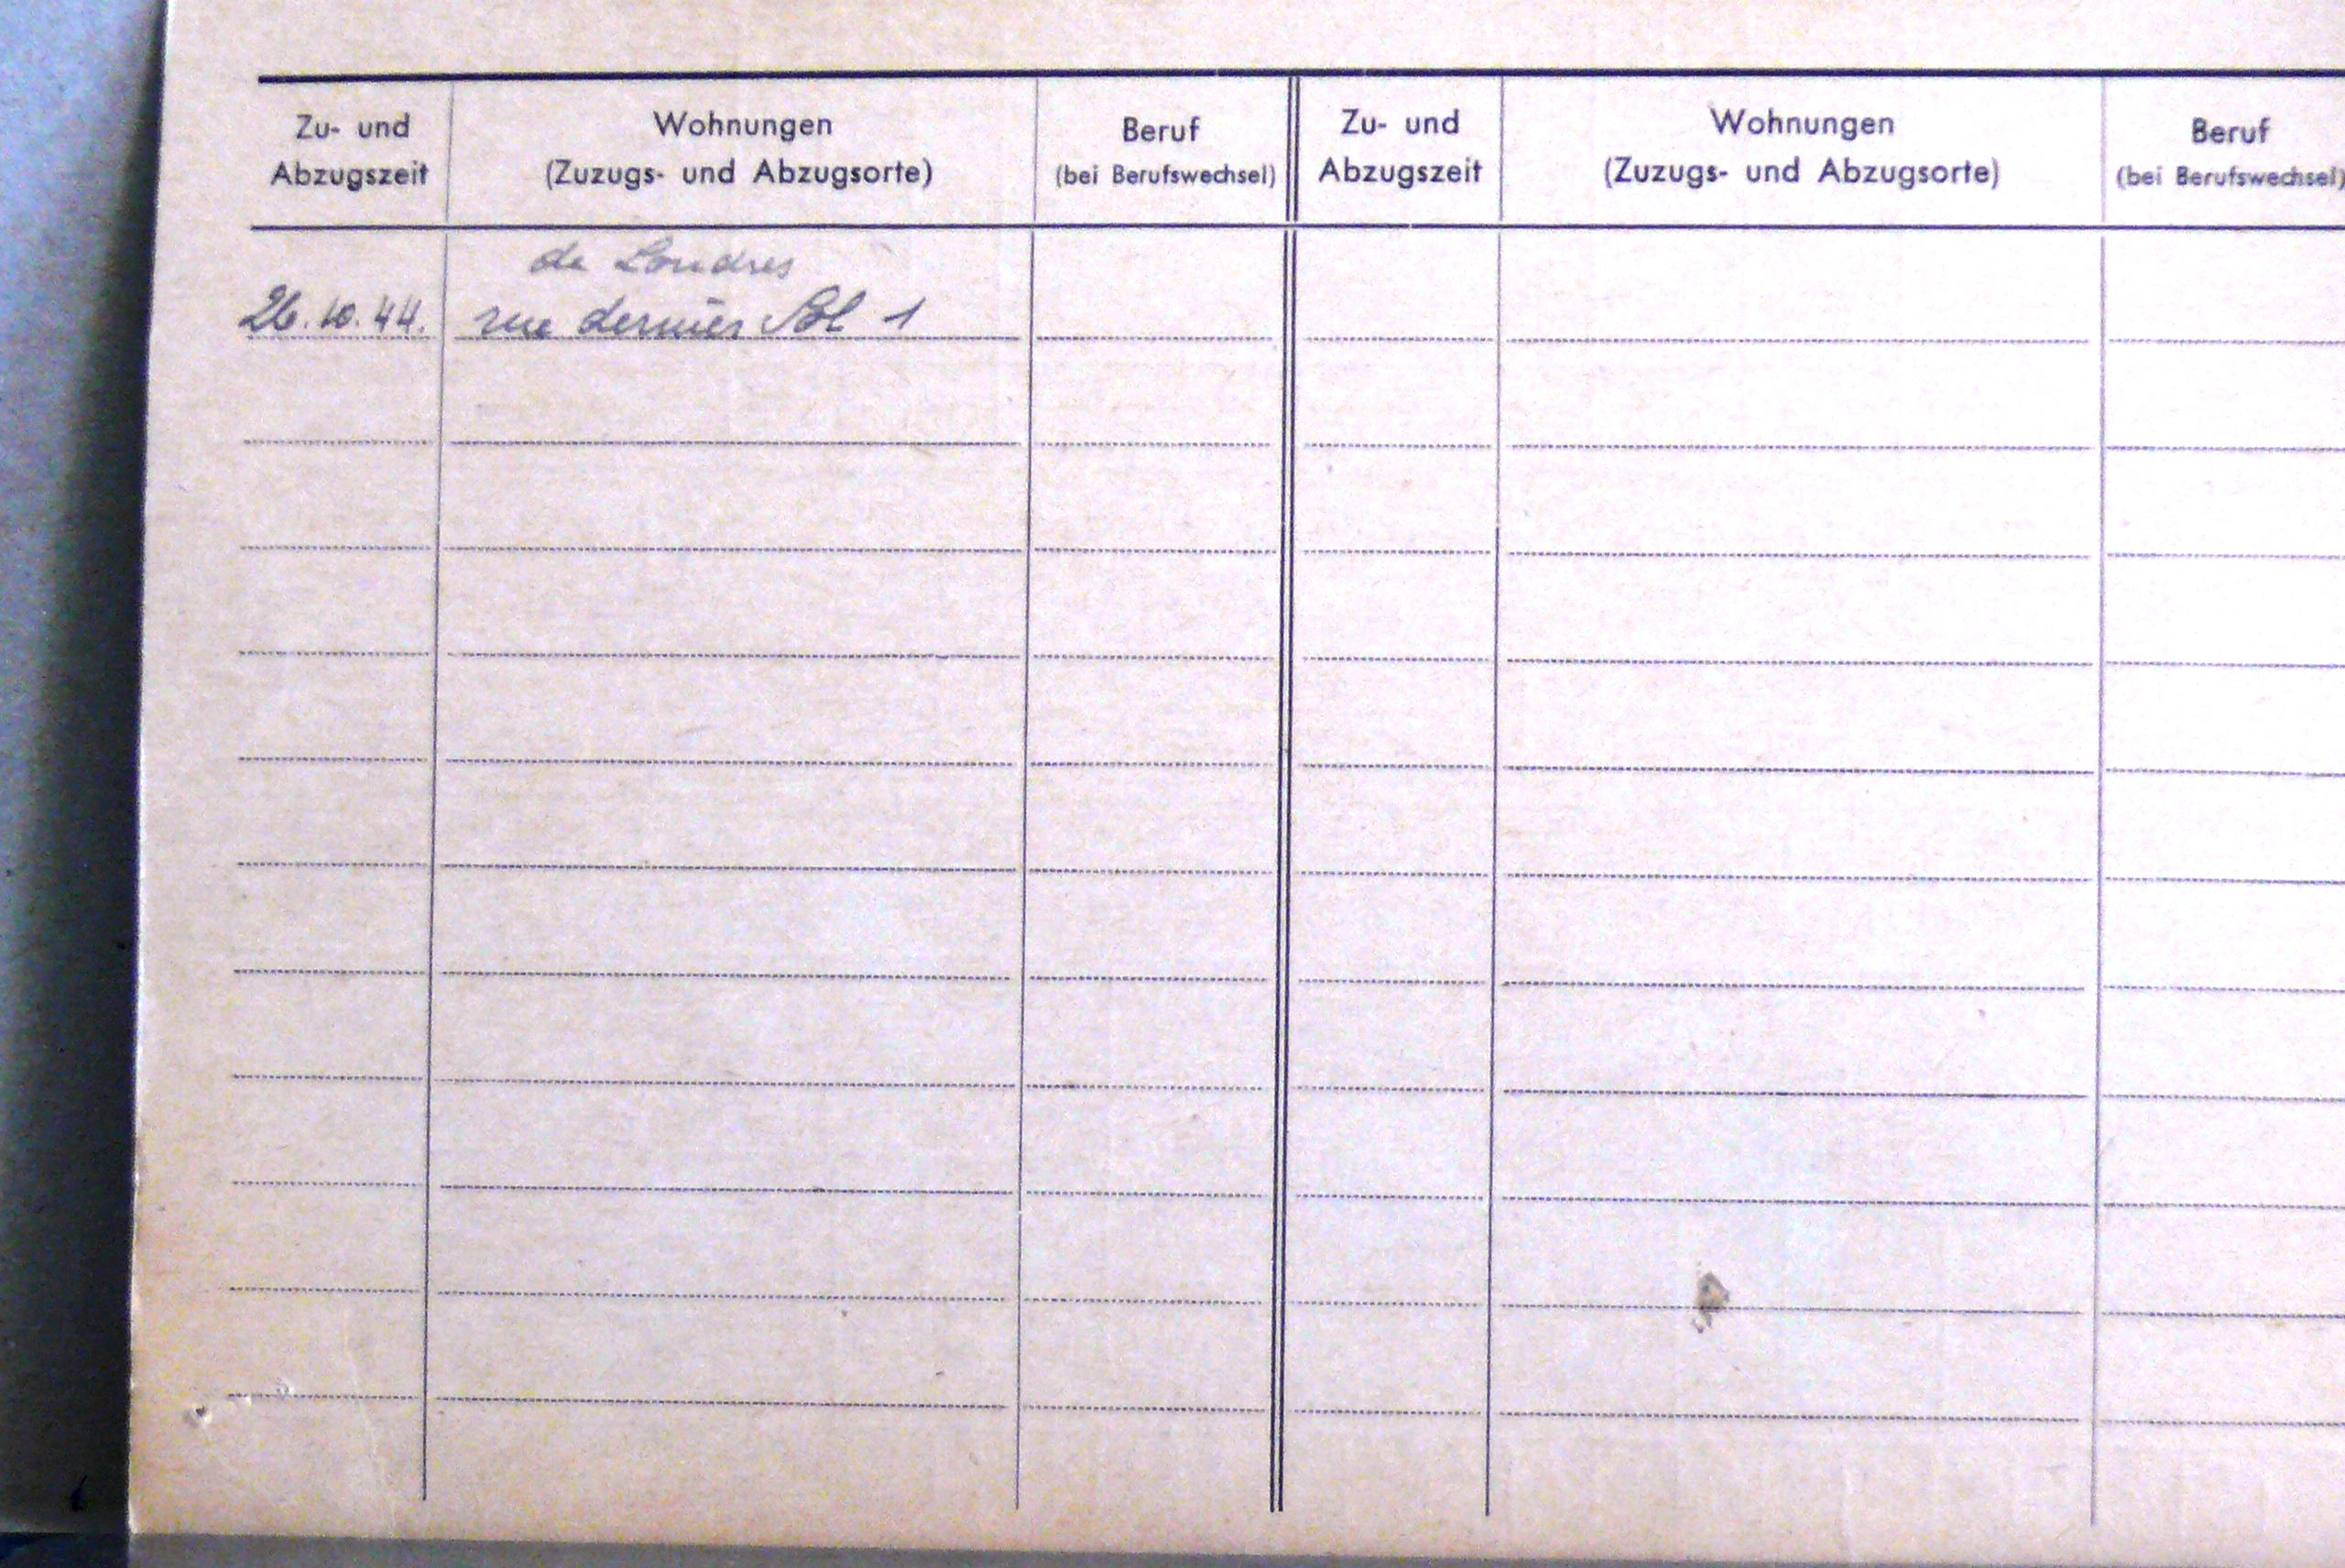 Zu- und Abzugszeit
Wohnungen (Zuzugs- und Abzugsorte)
Beruf (bei Berufswechsel)
Zu- und Abzugszeit
Wohnungen (Zuzugs- und Abzugsorte)
Beruf (bei Berufswechsel)
de Londres
26.10.44. rue dernier Sol 1